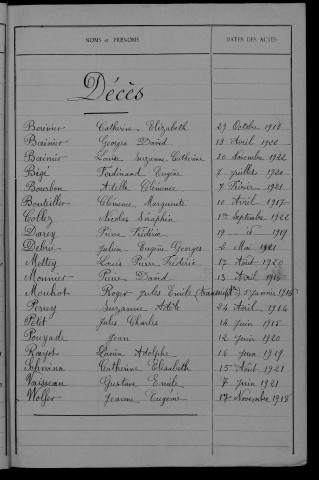 NOMS et PRÉNOMS DATES DES ACTES
Décès
Catherine Elizabeth 29 Octobre 1918
Bainier Georges David 13 Avril 1922
Bainier Louise Suzanne Catherine 20 Novembre 1922
Bigé Ferdinand Eugène 7 Juillet 1920
Bourbon Adelle Clémence 7 Février 1921
Bouteiller Clémence Marguerite 10 Avril 1917
Nicolas Séraphin 1er Septembre 1922
Darey Pierre Frédéric 19 1919
Julien Eugène Georges 2 Mai 1921
Mettey Louis Pierre Frédéric 17 Août 1920
Monnier Pierre David 13 Avril
Mouhot Roger Jules Emile 5 Janvier
Perrey Suzanne Adèle 24 Avril 1914
Petit Jules Charles 14 Juin 1915
Pouyade Jean 12 Juin 1920
Adolphe 16 Juin 1919
Catherine Elisabeth 15 Août 1921
Vaisseau Gustave Emile 7 Juin 1921
Wolfer Jeanne Eugénie 17 Novembre 1918